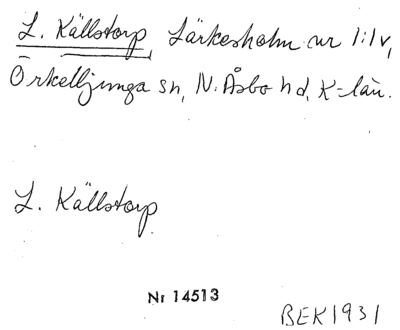 L. Källstorp, Lärkesholm nr 1:1v,
Örkelljunga sn, N. Åsbo hd, K-län.
L. Källstorp
Nr 14513
BEK1931